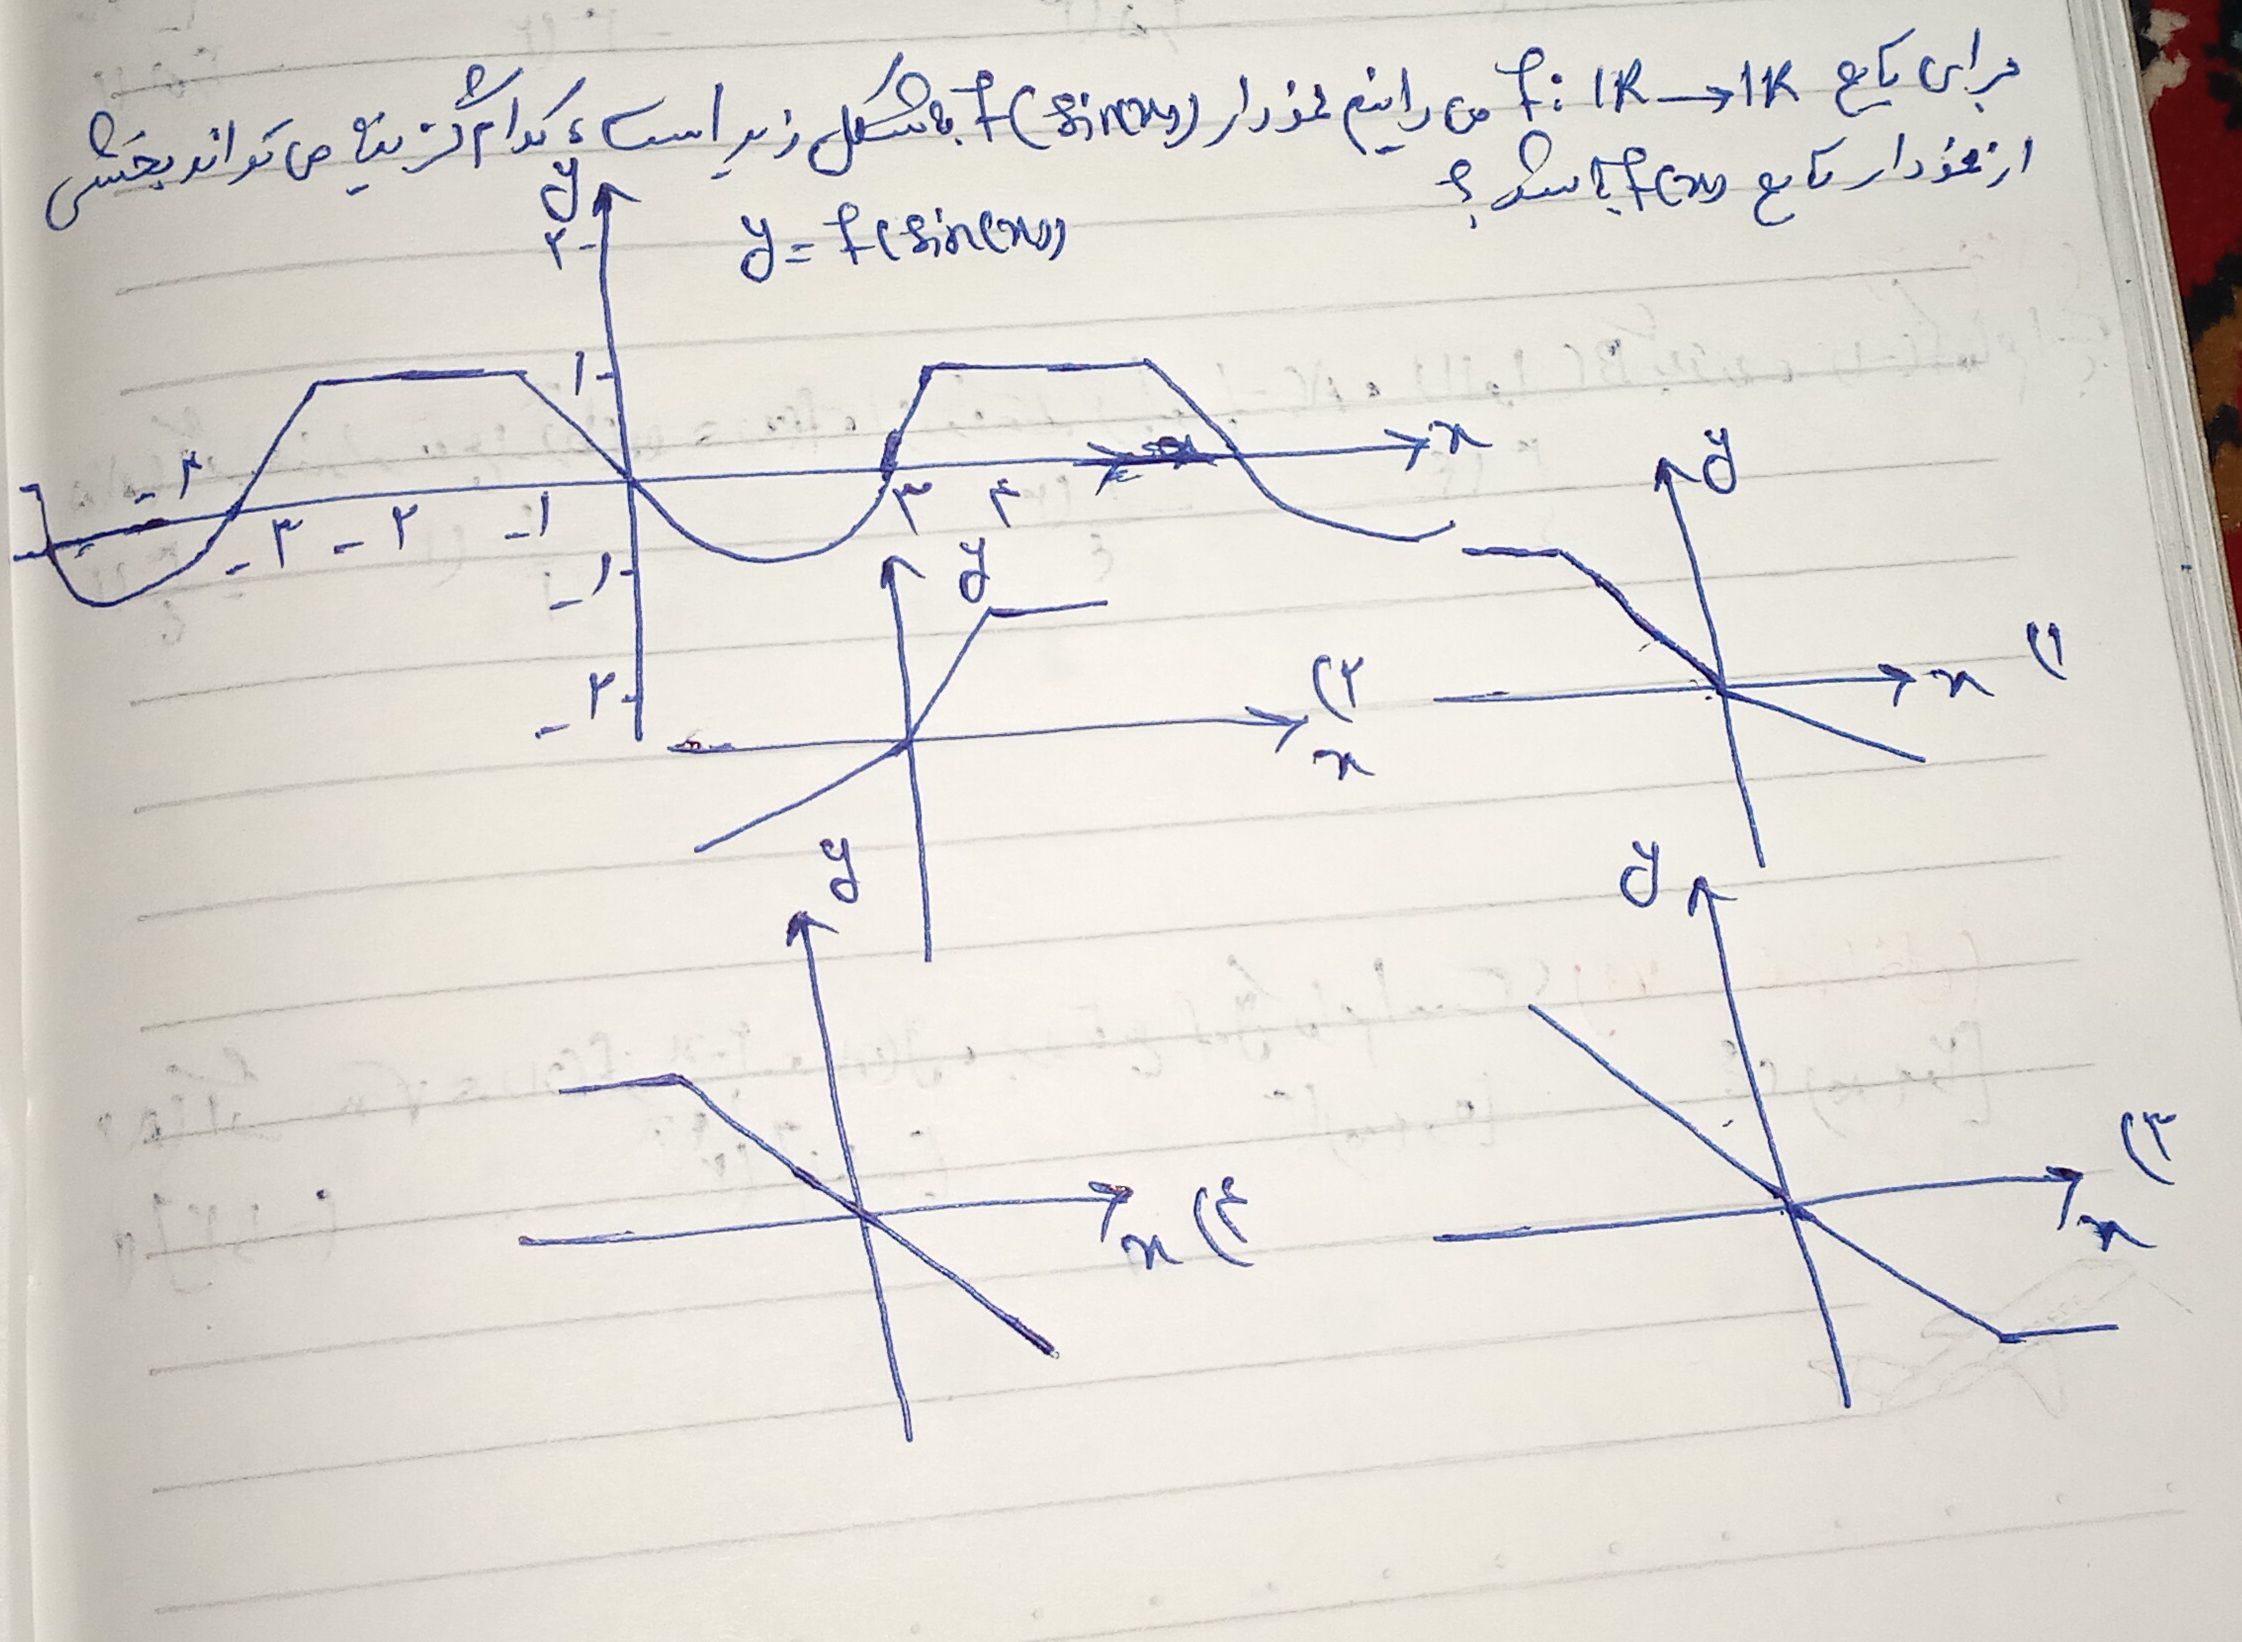 برای تابع f: IR → IR می دانیم نمودار f(sin(x)) به شکل زیر است، کدام گزینه می تواند بخشی
از نمودار تابع f(x) باشد؟
y
۲
y = f(sin(x))
۱
x
-۴
-۳ -۲ -۱
۳ ۴
-۱
-۲
y
x
۱)
y
x
۲)
y
x
۳)
y
x
۴)